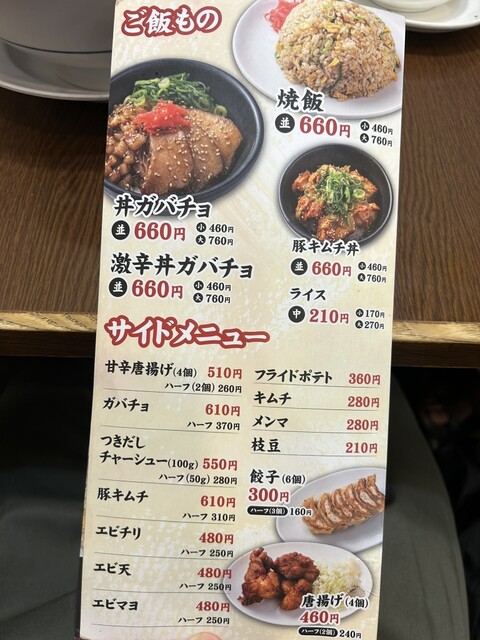 ご飯もの
焼飯
並 660円 小 460円
大 760円
丼ガバチョ
並 660円 小 460円
大 760円
激辛丼ガバチョ
並 660円 小 460円
大 760円
豚キムチ丼
並 660円 小 460円
大 760円
ライス
中 210円 小 170円
大 270円
サイドメニュー
甘辛唐揚げ(4個) 510円
ハーフ(2個) 260円
ガバチョ 610円
ハーフ 370円
つきだし
チャーシュー(100g) 550円
ハーフ(50g) 280円
豚キムチ 610円
ハーフ 310円
エビチリ 480円
ハーフ 250円
エビ天 480円
ハーフ 250円
エビマヨ 480円
ハーフ 250円
フライドポテト 360円
キムチ 280円
メンマ 280円
枝豆 210円
餃子(6個)
300円
ハーフ(3個) 160円
唐揚げ(4個)
460円
ハーフ(2個) 240円